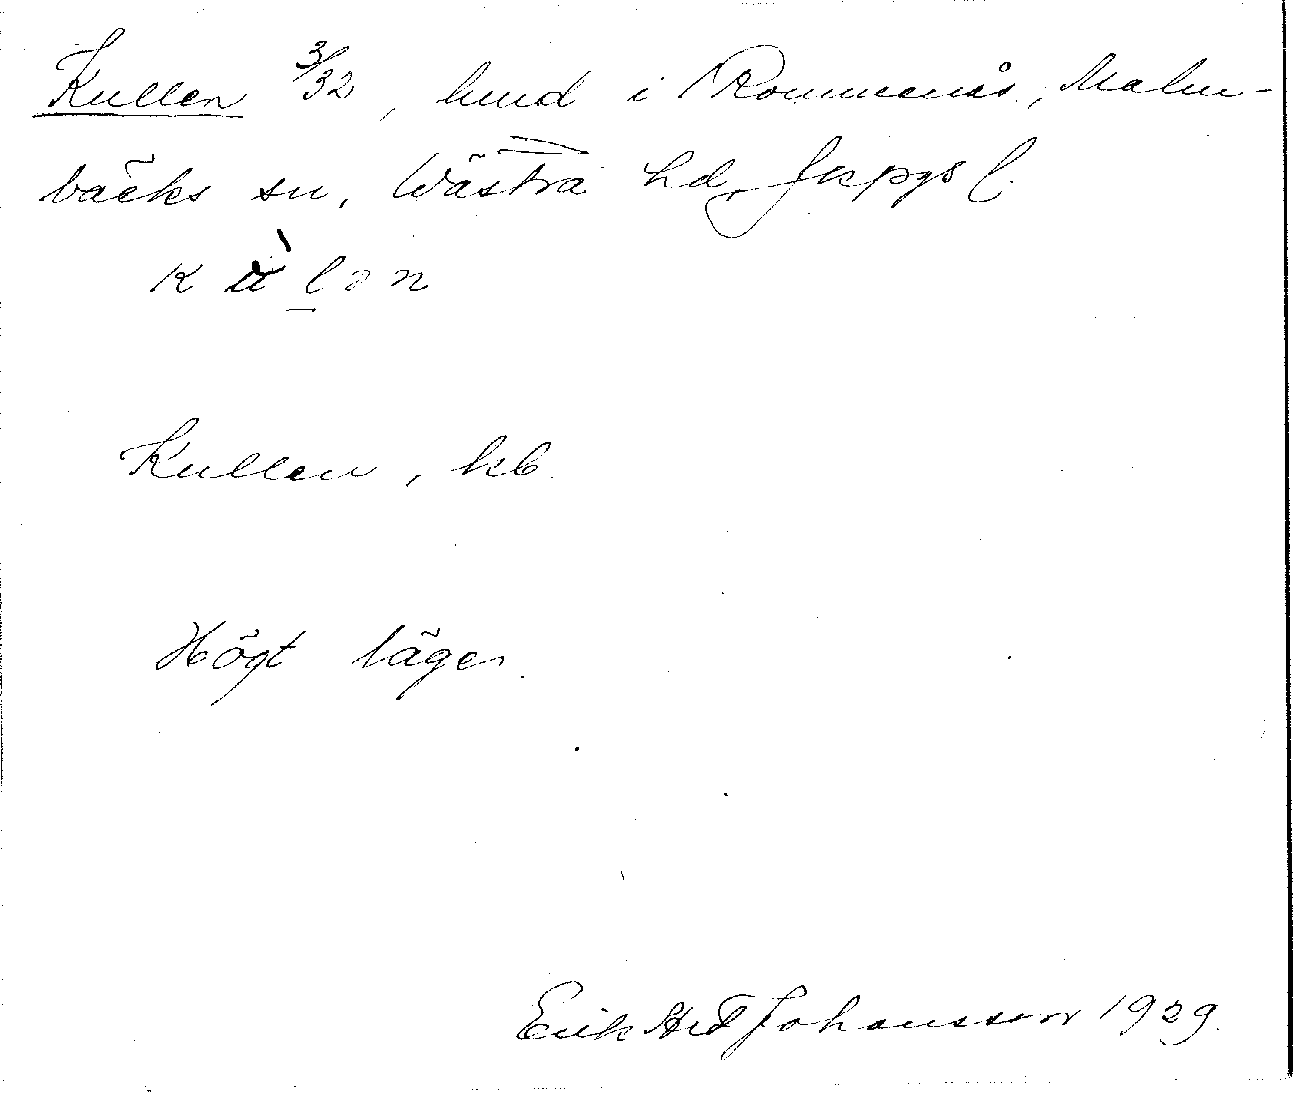 Kullen 3/32, hmd i Rommenås, Malm-
bäcks sn, Västra hd, Jkpgs l.
k ù l ə n
Kullen, kb.
Högt läge.
Erik Johansson 1929.